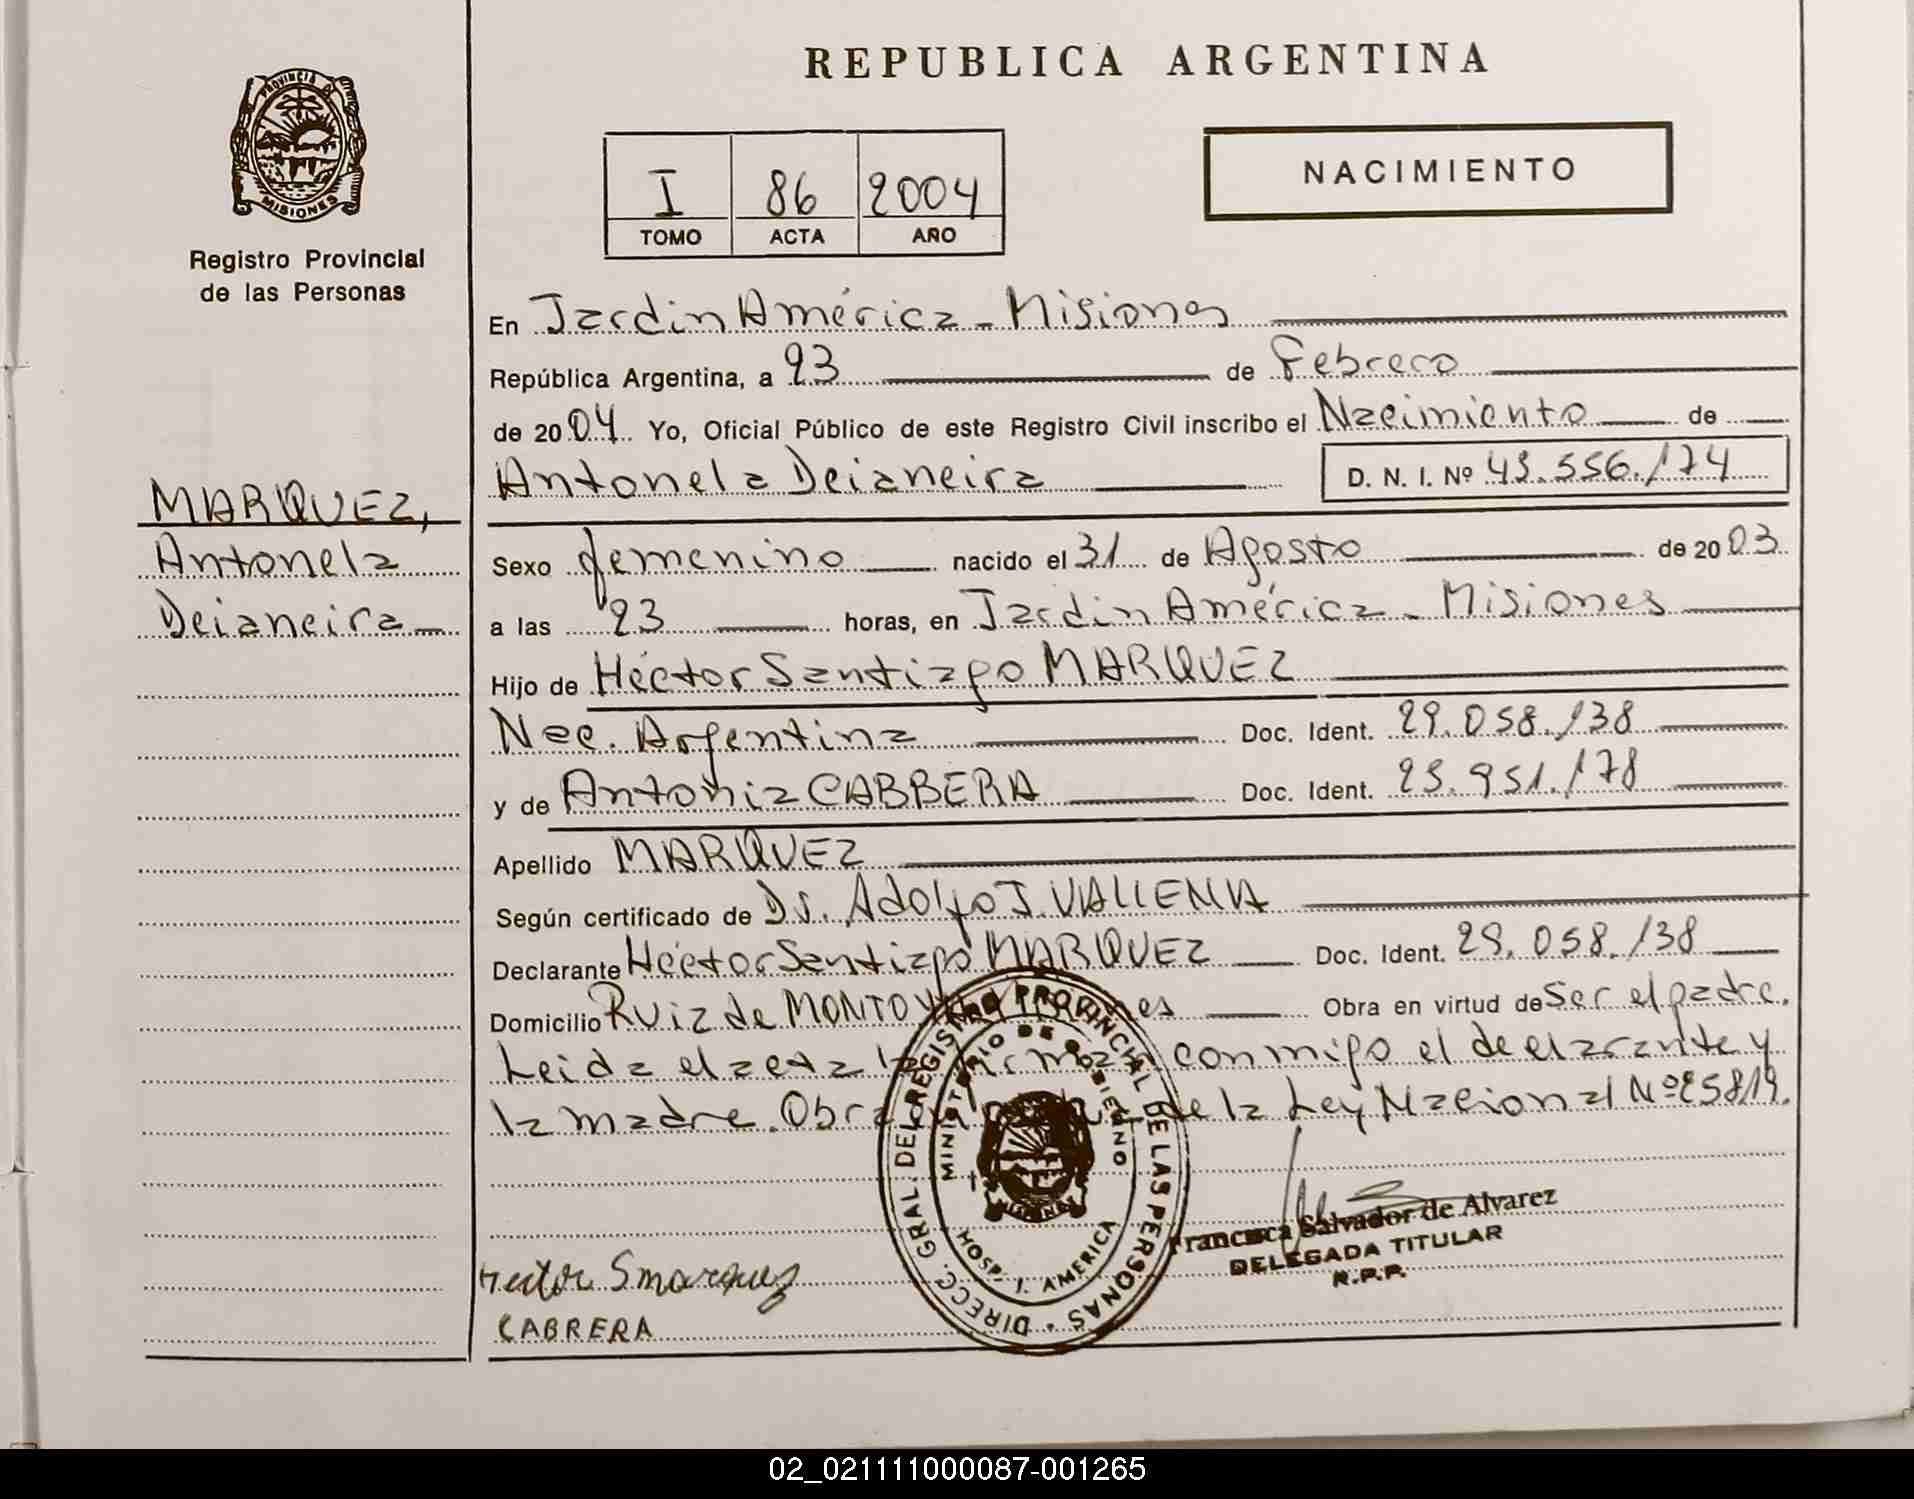 REPUBLICA ARGENTINA
PROVINCIA DE MISIONES
Registro Provincial
de las Personas
I 86 2004
TOMO ACTA AÑO
NACIMIENTO
MARQUEZ,
Antonela
Deianeira
En Jardin América - Misiones
República Argentina, a 23 de Febrero
de 2004 Yo, Oficial Público de este Registro Civil inscribo el Nacimiento de
Antonela Deianeira D. N. I. Nº 43.556.174
Sexo femenino nacido el 31 de Agosto de 2003
a las 23 horas, en Jardin América - Misiones
Hijo de Héctor Santiago MARQUEZ
Nac. Argentina Doc. Ident. 29.058.138
y de Antonia CABRERA Doc. Ident. 951.178
Apellido MARQUEZ
Según certificado de Dr. Adolfo J. VALLENA
Declarante Héctor Santiago MARQUEZ Doc. Ident. 29.058.138
Domicilio Ruiz de MONTOYA Obra en virtud de Ser el padre.
Leida el acta la conmigo el declarante y
la madre. Obra de la Ley Nacional Nº 25819.
DIRECC. GRAL. DEL REGISTRO PROVINCIAL DE LAS PERSONAS
MINISTERIO DE GOBIERNO
HOSP. J. AMERICA
Francisca Salvador de Alvarez
DELEGADA TITULAR
R.P.P.
Hector S marquez
CABRERA
02_021111000087-001265